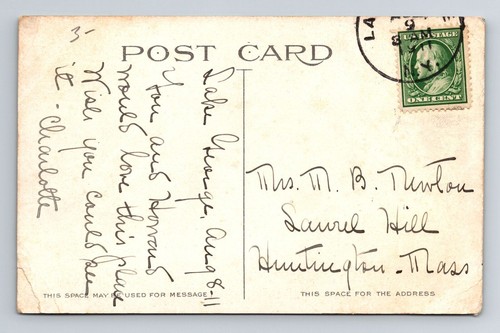 5
POST CARD
Lake George, Aug 8-11
You and Howard
would love this place
Wish you could see
it - Charlotte
THIS SPACE MAY BE USED FOR MESSAGE
LA
9
Y.
ONE CENT
Mrs. M. B. Newton
Laurel Hill
Huntington - Mass
THIS SPACE FOR THE ADDRESS